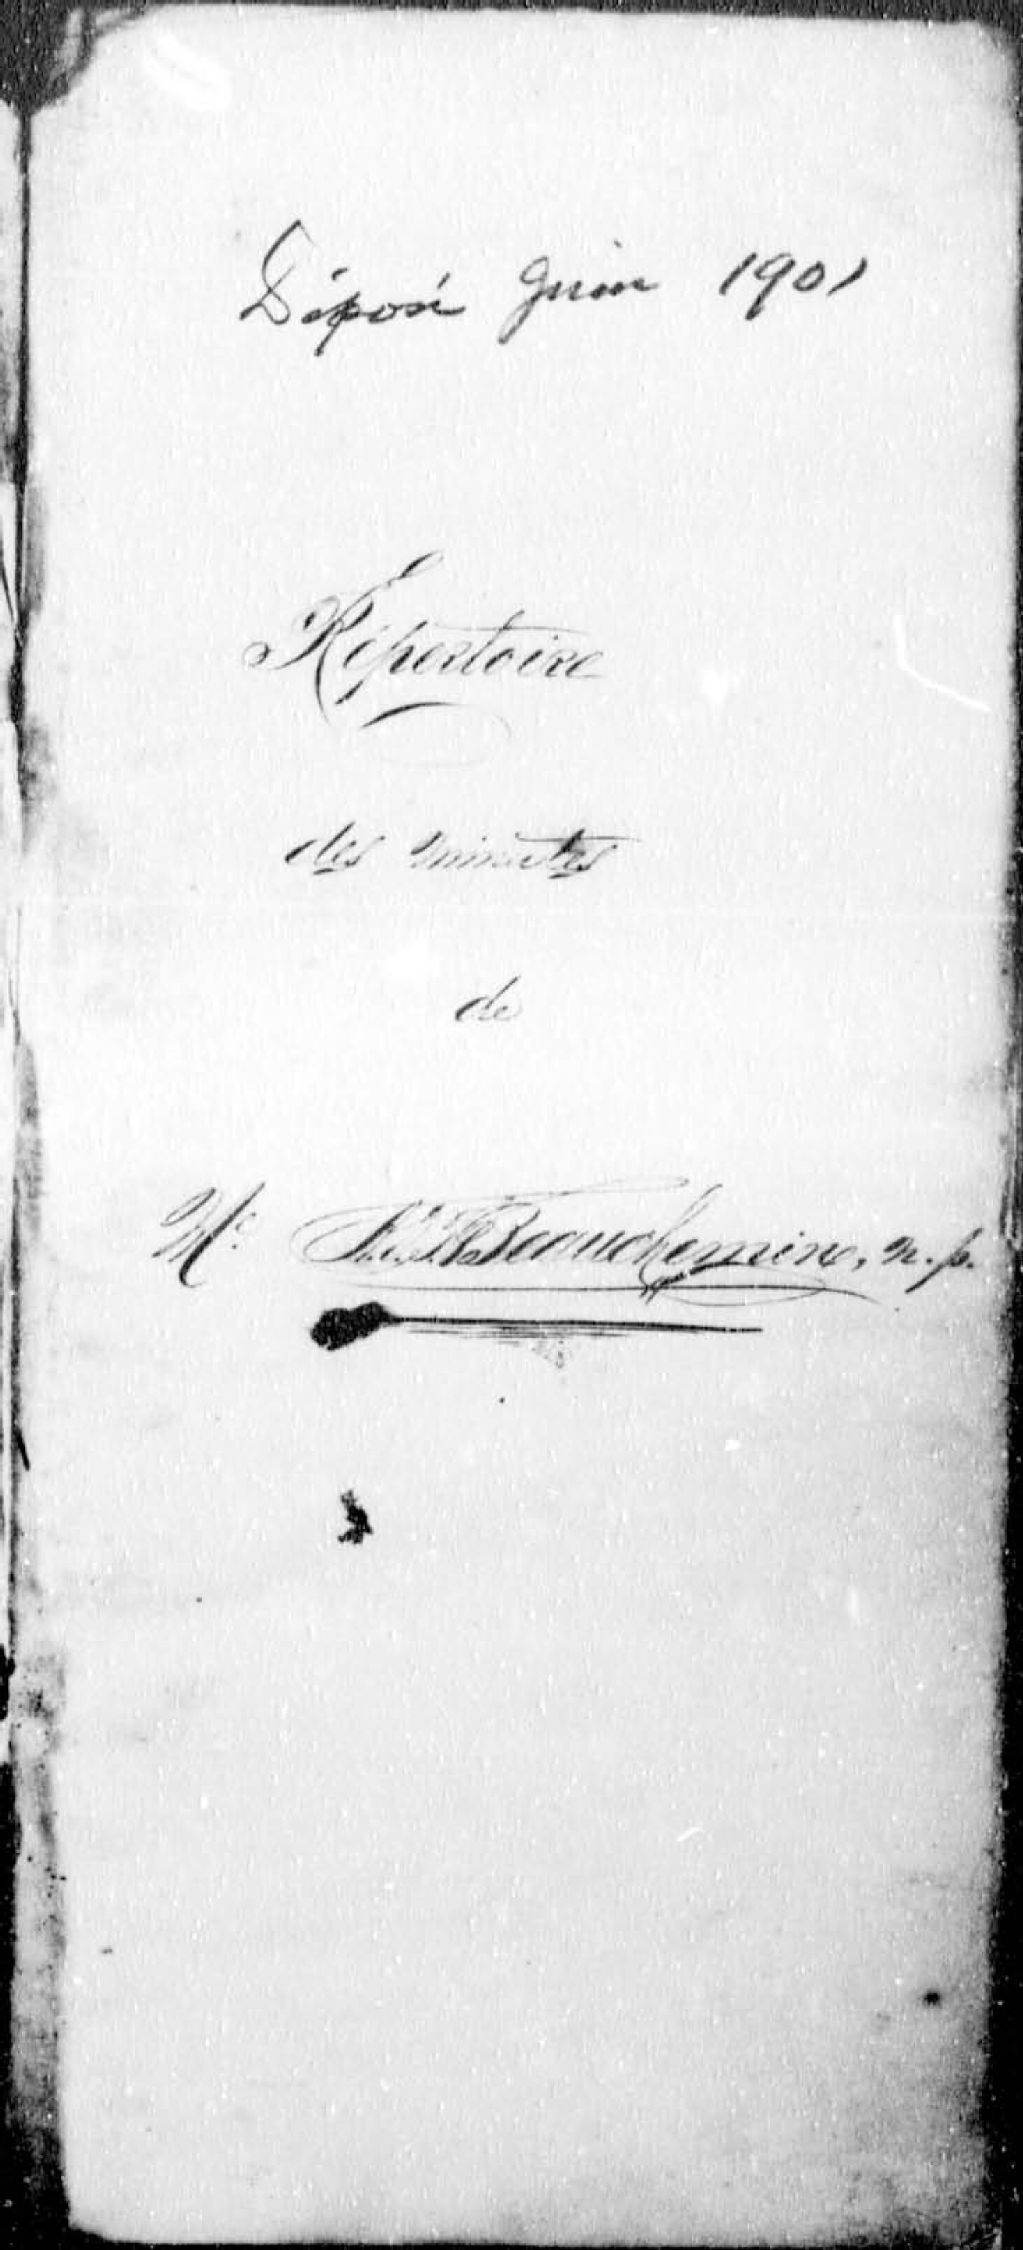 Déposé Juin 1901
Répertoire
des minutes
de
Me. Beauchemin, n. p.